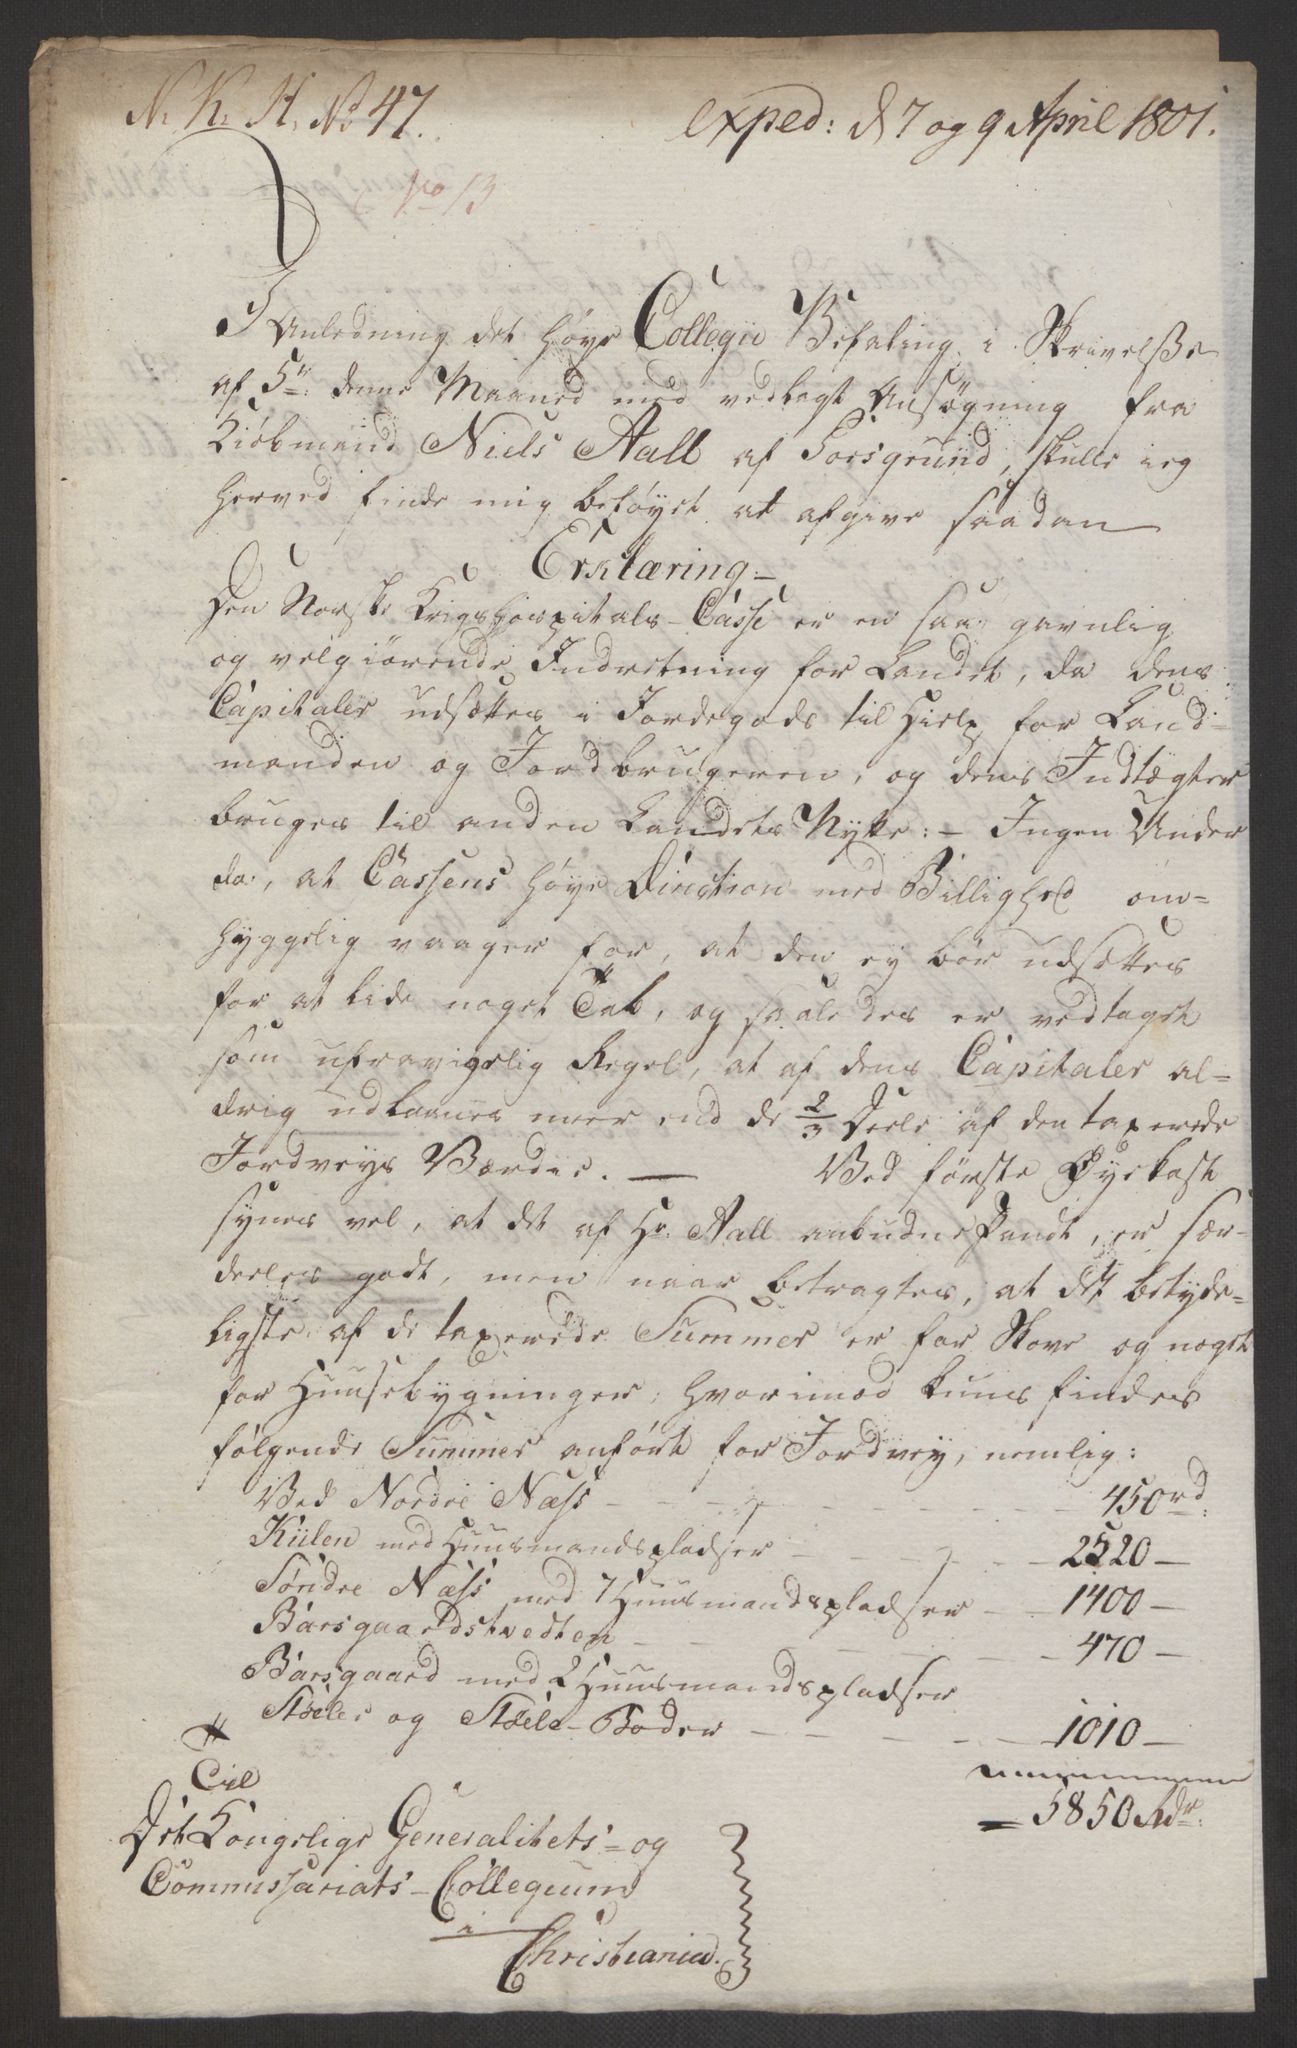 N. K. H. No 47.
exped: d 7 og 9 April 1801.
No 13
I Anledning det høye Collegii Befaling i Skrivelse
af 5te denne Maaned med vedlagt Ansøgning fra
Kiøbmand Niels Aall af Porsgrund, skulle ieg
herved finde mig beføyet at afgive saadan
Erklæring.-
Den Norske Krigshospitals-Casse er en saa gavnlig
og velgiørende Indretning for Landet, da dens
Capitaler udsættes i Jordegods til Hielp for Land-
manden og Jordbrugeren, og dens Indtægter
bruges til anden Landets Nytte:- Ingen Under
da, at Cassens høye Direction med Billighed om-
hyggelig vaager for, at den ey bør udsættes
for at lide noget Tab, og saaledes er vedtaget
som ufravigelig Regel, at af dens Capitaler al-
drig udlaanes meer end de 2/3 Deele af den taxerede
Jordveys Værdie. — Ved første Øyekast
synes vel, at det af Hr. Aall anbudne Pandt, er sær-
deeles godt, men naar betragtes, at det betyde-
ligste af de taxerede Summer er for Skove og noget
for Huusebygninger, hvorimod kuns findes
følgende Summer anført for Jordvey, nemlig:
Ved Nordre Næss - - - - 450 rd:
Kiilen med Huusmandspladser - - - 2520 —
Søndre Næss med 7 Huusmandspladser - - 1400 —
Barsgaardstvedten - - - - 470 —
Barsgaard med 2 Huusmandspladser
Støele og Støele-Boder - - - - 1010 —
= 5850 Rdr.
Til
Det Kongelige Generalitets- og
Commissariats-Collegium
i
Christiania.